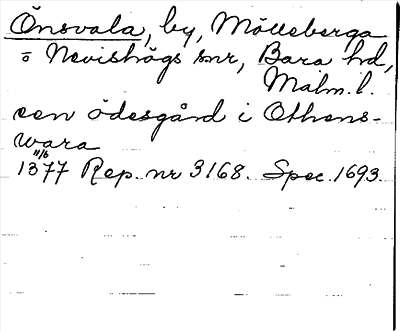 Önsvala, by, Mölleberga
o Nevishögs snr, Bara hd,
Malm. l.
een ödesgård i Othens-
wara
11/6
1377 Rep. nr 3168. Spec. 1693.